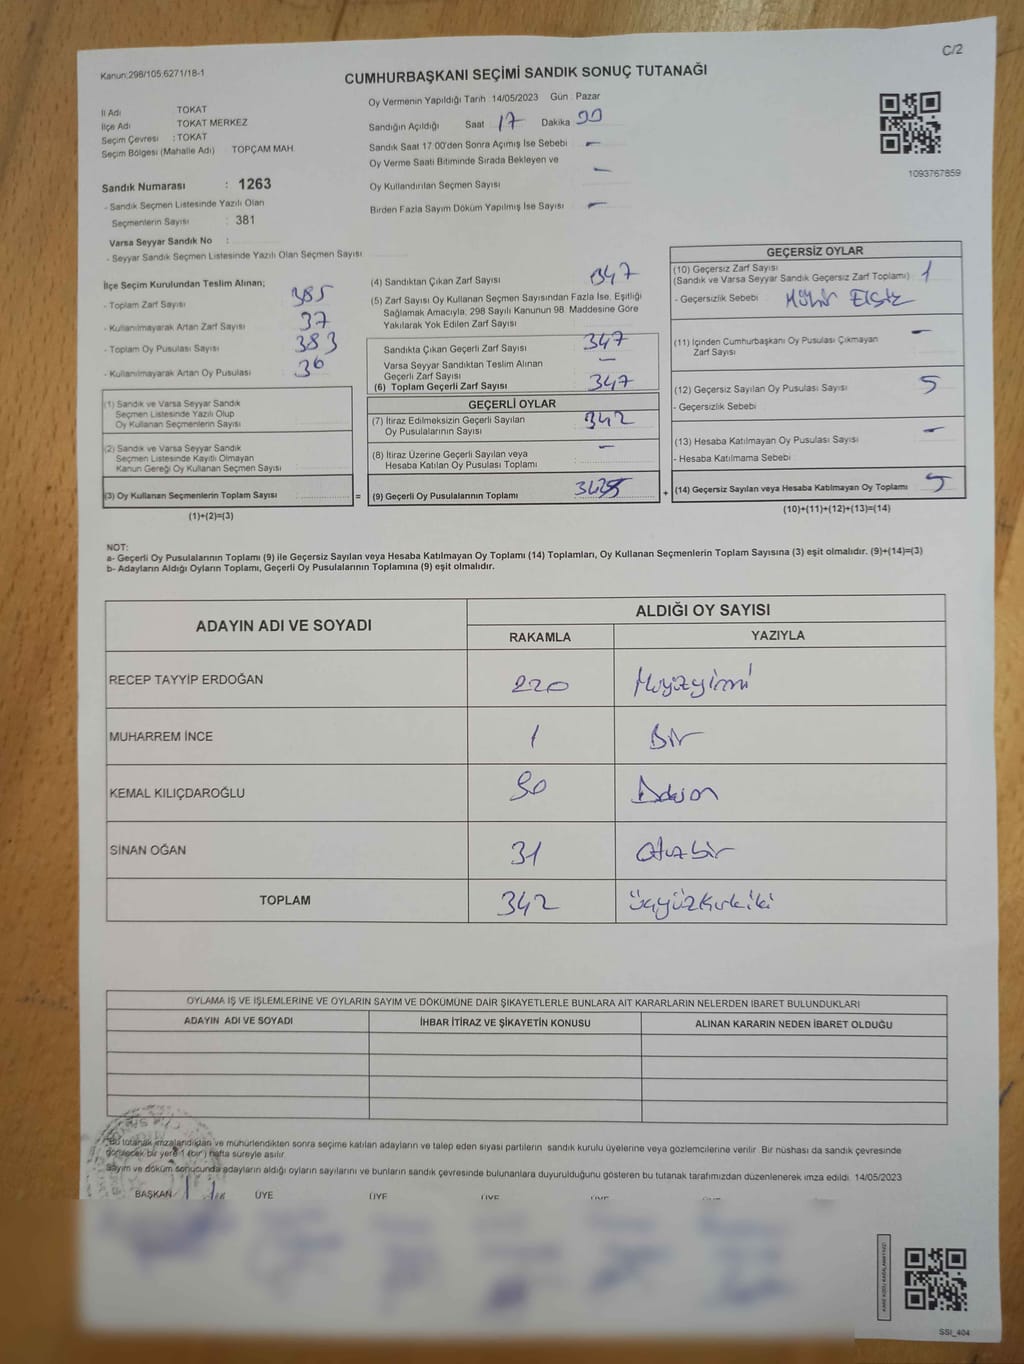 C/2
Kanun:298/105,6271/18-1
CUMHURBAŞKANI SEÇİMİ SANDIK SONUÇ TUTANAĞI
İl Adı TOKAT
İlçe Adı TOKAT MERKEZ
Seçim Çevresi : TOKAT
Seçim Bölgesi (Mahalle Adı) TOPÇAM MAH.
Oy Vermenin Yapıldığı Tarih : 14/05/2023 Gün : Pazar
Sandığın Açıldığı Saat 17 Dakika 00
Sandık Saat 17:00'den Sonra Açımış İse Sebebi –
Oy Verme Saati Bitiminde Sırada Bekleyen ve
Oy Kullandırılan Seçmen Sayısı –
Birden Fazla Sayım Döküm Yapılmış İse Sayısı –
1093767859
Sandık Numarası : 1263
- Sandık Seçmen Listesinde Yazılı Olan
Seçmenlerin Sayısı : 381
Varsa Seyyar Sandık No :
- Seyyar Sandık Seçmen Listesinde Yazılı Olan Seçmen Sayısı
İlçe Seçim Kurulundan Teslim Alınan;
- Toplam Zarf Sayısı 385
- Kullanılmayarak Artan Zarf Sayısı 37
- Toplam Oy Pusulası Sayısı 383
- Kullanılmayarak Artan Oy Pusulası 36
(1) Sandık ve Varsa Seyyar Sandık
Seçmen Listesinde Yazılı Olup
Oy Kullanan Seçmenlerin Sayısı
(2) Sandık ve Varsa Seyyar Sandık
Seçmen Listesinde Kayıtlı Olmayan
Kanun Gereği Oy Kullanan Seçmen Sayısı
(3) Oy Kullanan Seçmenlerin Toplam Sayısı =
(1)+(2)=(3)
(4) Sandıktan Çıkan Zarf Sayısı 347
(5) Zarf Sayısı Oy Kullanan Seçmen Sayısından Fazla İse, Eşitliği
Sağlamak Amacıyla, 298 Sayılı Kanunun 98. Maddesine Göre
Yakılarak Yok Edilen Zarf Sayısı
Sandıkta Çıkan Geçerli Zarf Sayısı 347
Varsa Seyyar Sandıktan Teslim Alınan
Geçerli Zarf Sayısı –
(6) Toplam Geçerli Zarf Sayısı 347
GEÇERLİ OYLAR
(7) İtiraz Edilmeksizin Geçerli Sayılan
Oy Pusulalarının Sayısı 342
(8) İtiraz Üzerine Geçerli Sayılan veya
Hesaba Katılan Oy Pusulası Toplamı –
(9) Geçerli Oy Pusulalarının Toplamı +
GEÇERSİZ OYLAR
(10) Geçersiz Zarf Sayısı
(Sandık ve Varsa Seyyar Sandık Geçersiz Zarf Toplamı) 1
- Geçersizlik Sebebi : Mühür Eksik
(11) İçinden Cumhurbaşkanı Oy Pusulası Çıkmayan
Zarf Sayısı –
(12) Geçersiz Sayılan Oy Pusulası Sayısı 5
- Geçersizlik Sebebi :
(13) Hesaba Katılmayan Oy Pusulası Sayısı –
- Hesaba Katılmama Sebebi :
(14) Geçersiz Sayılan veya Hesaba Katılmayan Oy Toplamı 5
(10)+(11)+(12)+(13)=(14)
NOT:
a- Geçerli Oy Pusulalarının Toplamı (9) ile Geçersiz Sayılan veya Hesaba Katılmayan Oy Toplamı (14) Toplamları, Oy Kullanan Seçmenlerin Toplam Sayısına (3) eşit olmalıdır. (9)+(14)=(3)
b- Adayların Aldığı Oyların Toplamı, Geçerli Oy Pusulalarının Toplamına (9) eşit olmalıdır.
ADAYIN ADI VE SOYADI ALDIĞI OY SAYISI
RAKAMLA YAZIYLA
RECEP TAYYİP ERDOĞAN 220 İkiyüzyirmi
MUHARREM İNCE 1 Bir
KEMAL KILIÇDAROĞLU 90 Doksan
SİNAN OĞAN 31 otuzbir
TOPLAM 342 üçyüzkırkiki
OYLAMA İŞ VE İŞLEMLERİNE VE OYLARIN SAYIM VE DÖKÜMÜNE DAİR ŞİKAYETLERLE BUNLARA AİT KARARLARIN NELERDEN İBARET BULUNDUKLARI
ADAYIN ADI VE SOYADI İHBAR İTİRAZ VE ŞİKAYETİN KONUSU ALINAN KARARIN NEDEN İBARET OLDUĞU
Bu tutanak imzalandıktan ve mühürlendikten sonra seçime katılan adayların ve talep eden siyasi partilerin sandık kurulu üyelerine veya gözlemcilerine verilir. Bir nüshası da sandık çevresinde
görülecek bir yere 1 (bir) hafta süreyle asılır.
Sayım ve döküm sonucunda adayların aldığı oyların sayılarını ve bunların sandık çevresinde bulunanlara duyurulduğunu gösteren bu tutanak tarafımızdan düzenlenerek imza edildi. 14/05/2023
BAŞKAN ÜYE ÜYE ÜYE ÜYE
SSI_404